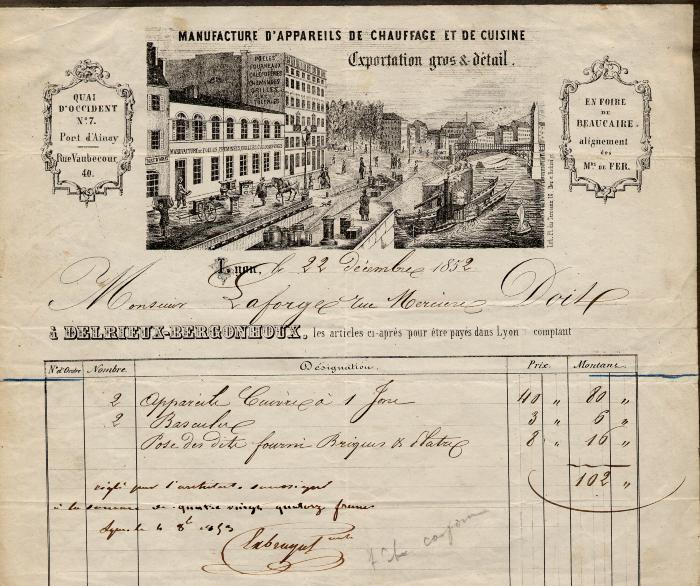 MANUFACTURE D'APPAREILS DE CHAUFFAGE ET DE CUISINE
Exportation gros & détail.
QUAI
D'OCCIDENT
N.º 7.
Port d'Ainay
Rue Vaubecour,
40.
EN FOIRE
de
BEAUCAIRE.
alignement
des
Mds DE FER.
POÊLES
FOURNEAUX
CALORIFÈRES
CHEMINÉES
GRILLES
Lyon, le 22 décembre 1852
Monsieur Laforge rue Mercière Doit
à DELRIEUX-BERGONHOUX, les articles ci-après pour être payés dans Lyon comptant
N.º d'Ordre Nombre. Désignation. Prix. Montant.
2 Appareils Cuivre à 1 Joue 40 " 80 "
2 Bascules 3 " 6 "
Pose des dits fourni Briques & Platre 8 " 16 "
102 "
réglé par l'architecte soussigné
à la somme de quatre vingt quatorze francs
Lyon le 4 8e 1853